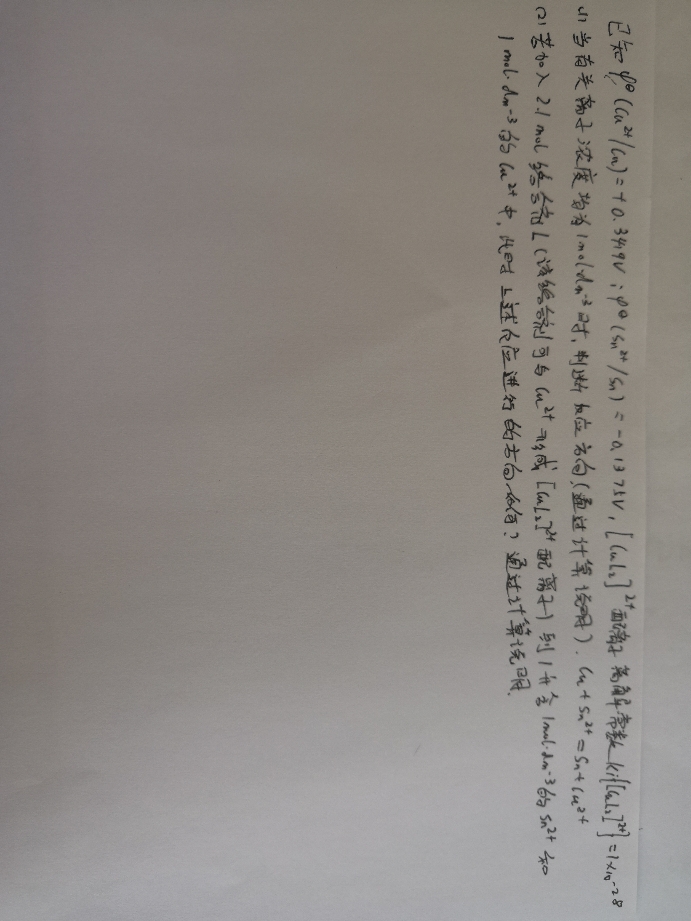 已知 φ⊖(Cu²⁺/Cu)=+0.3419V; φ⊖(Sn²⁺/Sn)=-0.1375V, [CuL₂]²⁺ 配离子 离解常数 Ki{[CuL₂]²⁺}=1×10⁻²⁸
(1) 当有关离子浓度均为1mol·dm⁻³时, 判断反应方向(通过计算说明). Cu+Sn²⁺=Sn+Cu²⁺
(2) 若加入2.1mol络合剂L(该络合剂可与Cu²⁺形成[CuL₂]²⁺配离子)到1升含1mol·dm⁻³的Sn²⁺和
1mol·dm⁻³的Cu²⁺中, 此时上述反应进行的方向如何? 通过计算说明.